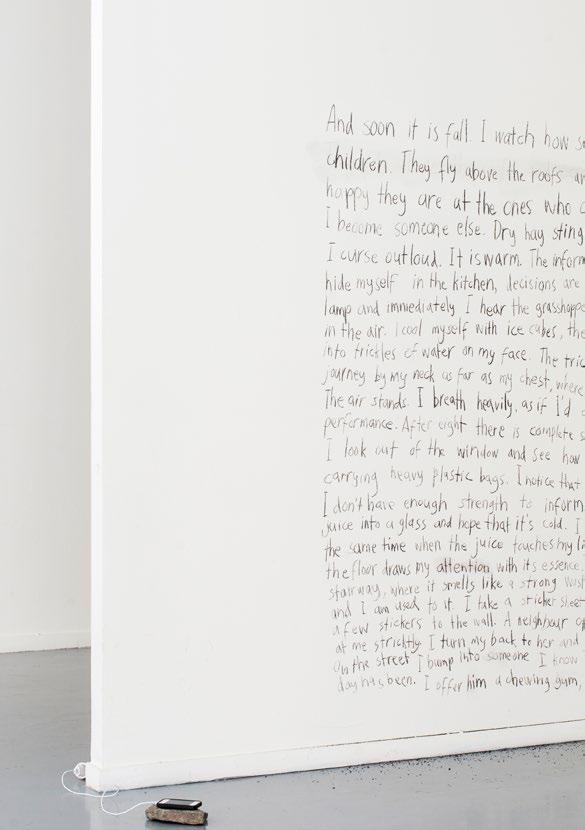 And soon it is fall. I watch how
children. They fly above the roofs
happy they are at the ones who
I become someone else. Dry hay sting
I curse outloud. It is warm. The inform
hide myself in the kitchen, decisions are
lamp and immediately I hear the grasshoppe
in the air. I cool myself with ice cubes, the
into trickles of water on my face. The tric
journey by my neck as far as my chest, where
The air stands. I breath heavily, as if I'd
performance. After eight there is complete
I look out of the window and see how
carrying heavy plastic bags. I notice that
I don't have enough strength to inform
juice into a glass and hope that it's cold. I
the same time when the juice touches my li
the floor draws my attention with its essence.
stairway, where it smells like a strong
and I am used to it. I take a sticker sheet
a few stickers to the wall. A neighbour
at me strictly. I turn my back to her and
On the street I bump into someone I know
day has been. I offer him a chewing gum,